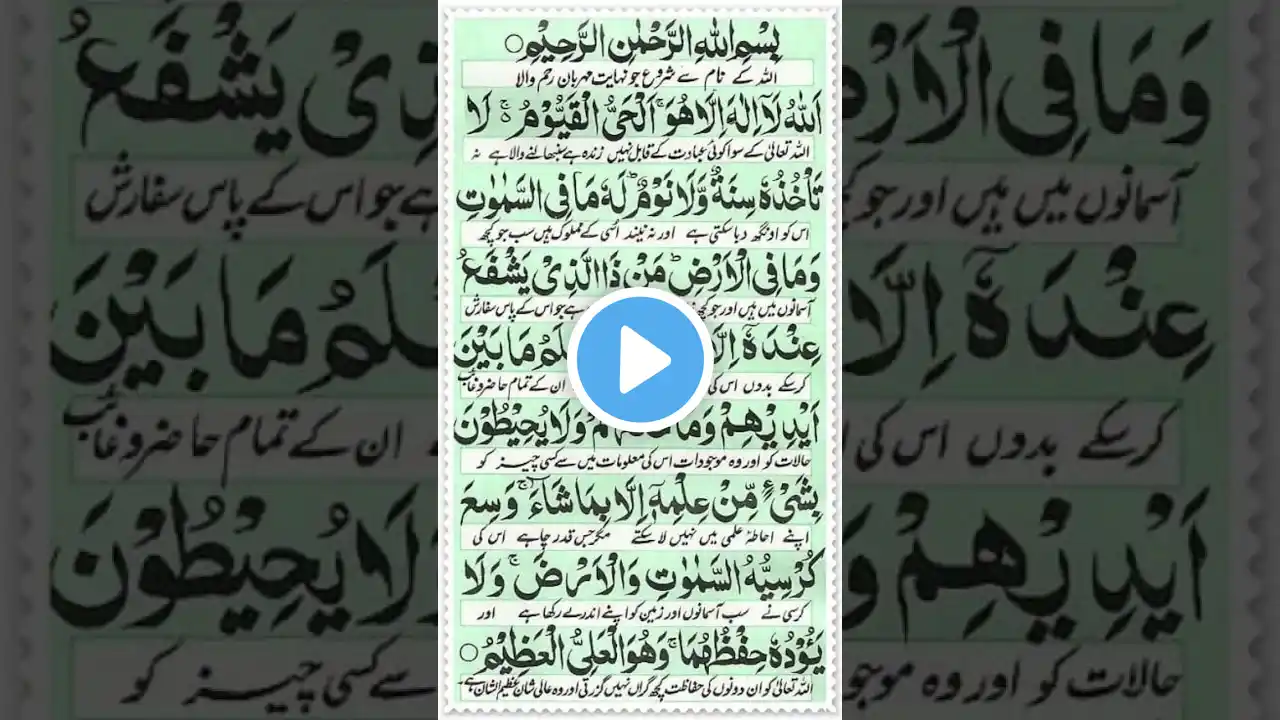 بِسْمِ اللهِ الرَّحْمٰنِ الرَّحِيْمِ ○
اللہ کے نام سے شروع جو نہایت مہربان رحم والا
اَللهُ لَاۤ اِلٰهَ اِلَّا هُوَ ۚ اَلْحَيُّ الْقَيُّوْمُ ۚ لَا
اللہ تعالیٰ کے سوا کوئی عبادت کے قابل نہیں زندہ ہے سنبھالنے والا ہے نہ
تَاْخُذُهٗ سِنَةٌ وَّلَا نَوْمٌ ؕ لَهٗ مَا فِي السَّمٰوٰتِ
اس کو اونگھ دبا سکتی ہے اور نہ نیند اسی کے مملوک ہیں سب جو کچھ
وَمَا فِي الْاَرْضِ ؕ مَنْ ذَا الَّذِيْ يَشْفَعُ
آسمانوں میں ہیں اور جو کچھ ہے جو اس کے پاس سفارش
عِنْدَهٗۤ اِلَّا يَعْلَمُ مَا بَيْنَ
کرسکے بدوں اس کی ان کے تمام حاضر و غائب
اَيْدِيْهِمْ وَمَا خَلْفَهُمْ وَلَا يُحِيْطُوْنَ
حالات کو اور وہ موجودات اس کی معلومات میں سے کسی چیز کو
بِشَيْءٍ مِّنْ عِلْمِهٖۤ اِلَّا بِمَا شَآءَ ۚ وَسِعَ
اپنے احاطۂ علمی میں نہیں لا سکتے مگر جس قدر چاہے اس کی
كُرْسِيُّهُ السَّمٰوٰتِ وَالْاَرْضَ ۚ وَلَا
کرسی نے سب آسمانوں اور زمین کو اپنے اندر لے رکھا ہے اور
يَـُٔوْدُهٗ حِفْظُهُمَا ۚ وَهُوَ الْعَلِيُّ الْعَظِيْمُ ○
اللہ تعالیٰ کو ان دونوں کی حفاظت کچھ گراں نہیں گزرتی اور وہ عالی شان عظیم الشان ہے